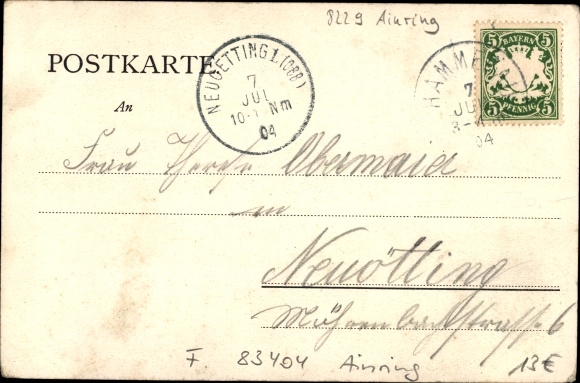 8229 Ainring
POSTKARTE
An
NEUOETTING 1.(OBB)
7
JUL
10-11 Nm
04
HAMME
7
JUL
04
5 BAYERN 5
5 PFENNIG 5
Frau Therese Obermaier
in
Neuötting
Mührenbachstrasse 6
F 83404 Ainring 13€